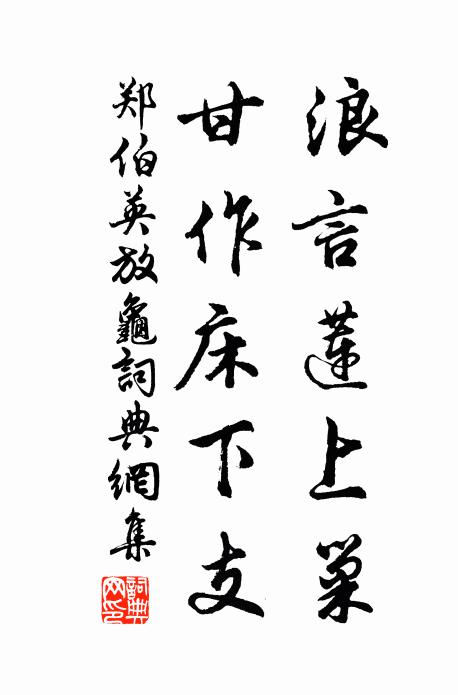 浪言蓮上巢
甘作床下支
郑伯英放龜詞典網集
詞典网印